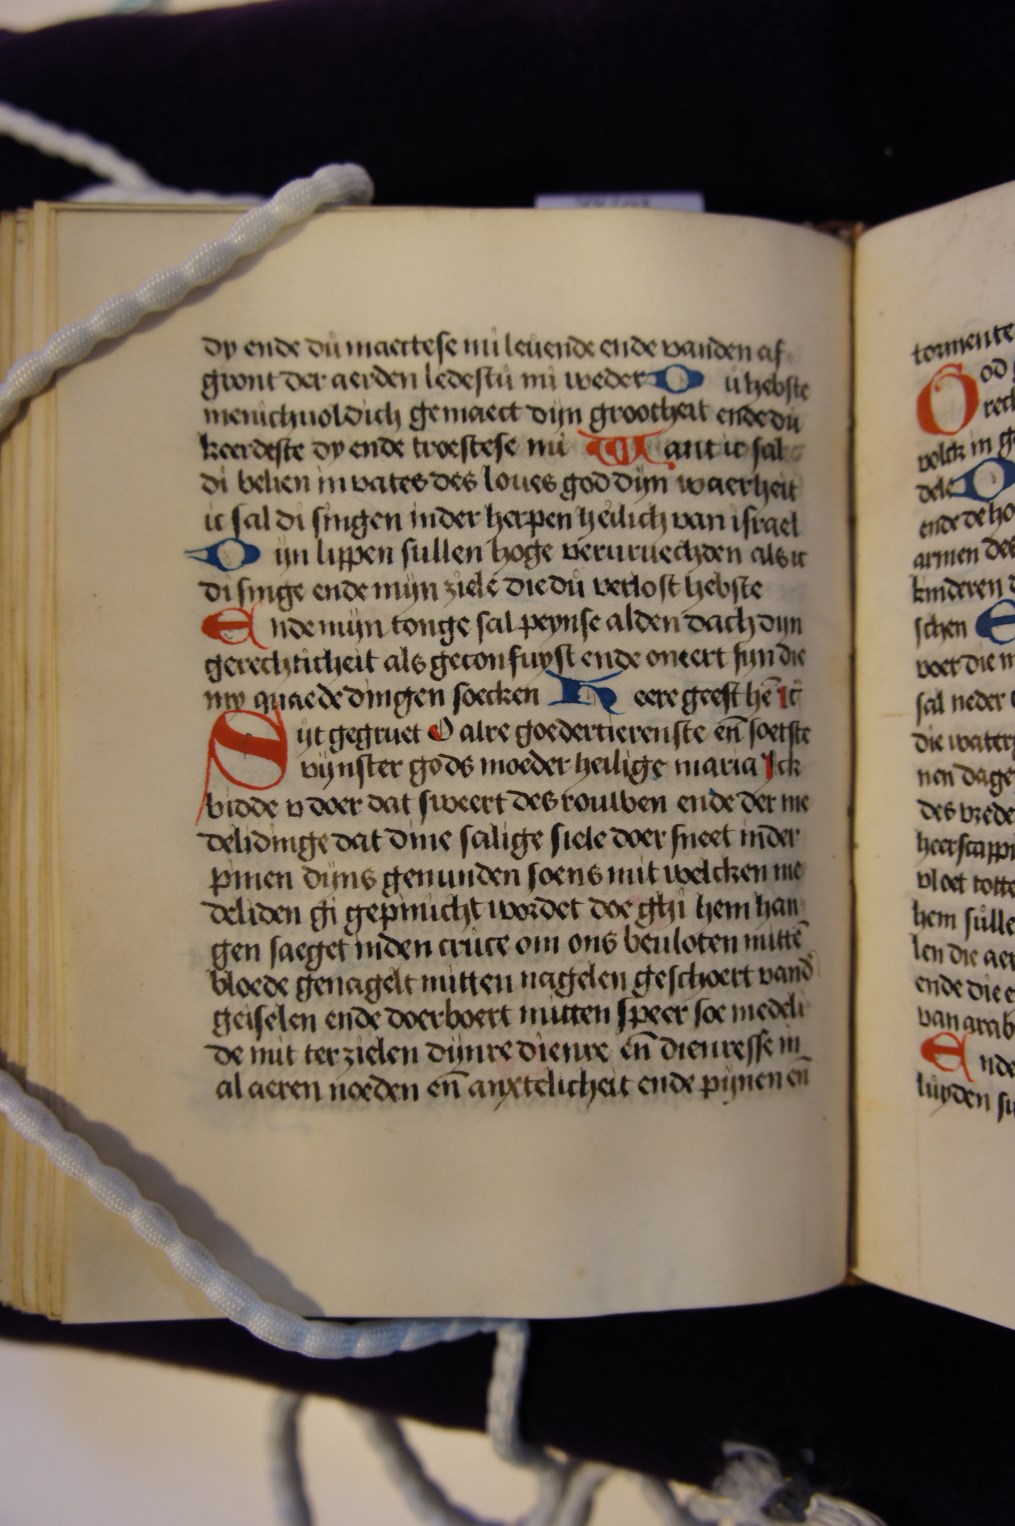 dy ende dū maectese mi leuende ende vanden af
gront der aerden ledestū mi weder D u hebste
menichuoldich gemaect dijn grootheit ende du
keerdeste dy ende troestese mi Want ic sal
di belien in vates des loues god dijn waerheit
ic sal di singen inder herpen heilich van israel
Mijn lippen sullen hoge veruruechden als ic
di singe ende mijn ziele die dū verlost hebste
Ende mijn tonge sal peynse al den dach dijn
gerechticheit als geconfuyst ende onteert sijn die
my quaede dingen soecken Heere geest hē ic
Sijt gegruet O alre goedertierenste en̄ soetste
vrijnster gods moeder heilige maria Ick
bidde v doer dat sweert des rouwen ende der me
delidinge dat dine salige siele doer sneet inder
pinen dijns geminden soens mit welcken me
deliden gi gepinicht wordet doe ghi hem han
gen saeget inden cruce om ons beuloten mittē
bloede genagelt mitten nagelen geschoert vand
geiselen ende doerboert mitten speer soe medeli
de mit ter zielen dijnre dienre en̄ dienresse in
al aeren noeden en̄ anxtelicheit ende pijnen en̄
tormente
God
rech
volck in g
dele D
ende de ho
armen des
kinderen d
schen E
voet die m
sal neder
die water
nen dage
des vrede
heerscappi
vloet totte
hem sulle
len die aer
ende die e
van arab
Ende
luyden su